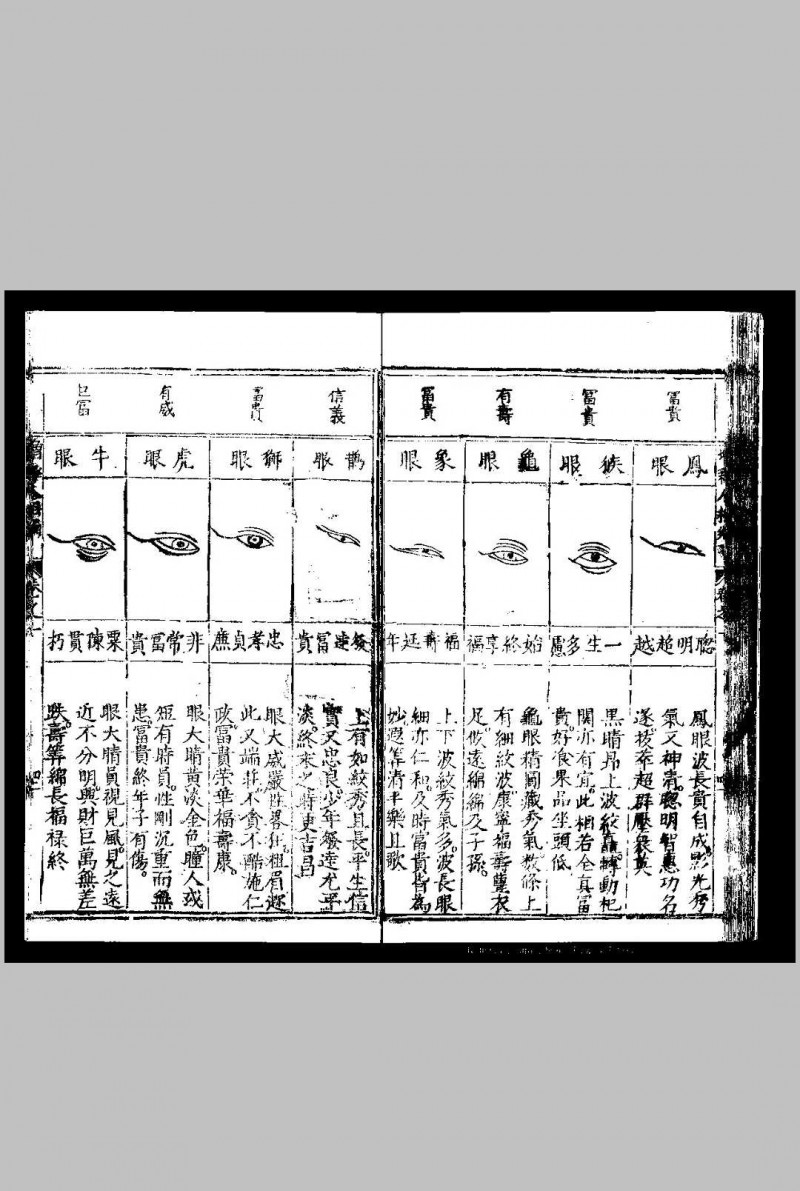 富貴
鳳眼
聰明超越
鳳眼波長貴自成影光秀
氣又神清聰明智惠功名
遂拔萃超群壓衆英
富貴
猴眼
一生多慮
黑睛昂上波紋疊轉動杞
関亦有宜此相若全真富
貴好食果品坐頭低
有壽
龜眼
始終享福
龜眼精圓藏秀氣數條上
有細紋波康寧福壽豐衣
足攸遠綿綿及子孫
富貴
象眼
福壽廷年
上下波紋秀氣多波長眼
細亦仁和及時富貴皆為
妙遐筭清平樂且歌
信義
鵲眼
發達富貴
上有如紋秀且長平生信
實又忠良少年發達尤平
淡終末之時更吉昌
富貴
獅眼
忠孝貞廉
眼大威嚴性畧狂粗眉趂
此又端莊不貪不酷施仁
政富貴榮華福壽康
有威
虎眼
非常富貴
眼大睛黃淡金色瞳人或
短有時員性剛沉重而無
患富貴終年子有傷
巨富
牛眼
粟陳貫朽
眼大睛員視見風見之遠
近不分明興財巨萬無差
跌壽筭綿長福禄終